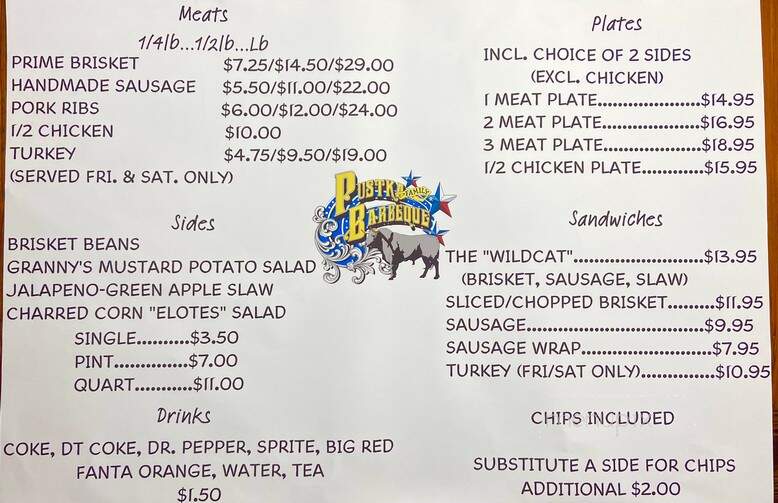 Meats
1/4lb...1/2lb...Lb
PRIME BRISKET $7.25/$14.50/$29.00
HANDMADE SAUSAGE $5.50/$11.00/$22.00
PORK RIBS $6.00/$12.00/$24.00
1/2 CHICKEN $10.00
TURKEY $4.75/$9.50/$19.00
(SERVED FRI. & SAT. ONLY)
Sides
BRISKET BEANS
GRANNY'S MUSTARD POTATO SALAD
JALAPENO-GREEN APPLE SLAW
CHARRED CORN "ELOTES" SALAD
SINGLE.........$3.50
PINT.............$7.00
QUART............$11.00
Drinks
COKE, DT COKE, DR. PEPPER, SPRITE, BIG RED
FANTA ORANGE, WATER, TEA
$1.50
PUSTKA FAMILY
BARBEQUE
Plates
INCL. CHOICE OF 2 SIDES
(EXCL. CHICKEN)
1 MEAT PLATE....................$14.95
2 MEAT PLATE...................$16.95
3 MEAT PLATE...................$18.95
1/2 CHICKEN PLATE............$15.95
Sandwiches
THE "WILDCAT".........................$13.95
(BRISKET, SAUSAGE, SLAW)
SLICED/CHOPPED BRISKET.......$11.95
SAUSAGE..................................$9.95
SAUSAGE WRAP.........................$7.95
TURKEY (FRI/SAT ONLY).............$10.95
CHIPS INCLUDED
SUBSTITUTE A SIDE FOR CHIPS
ADDITIONAL $2.00